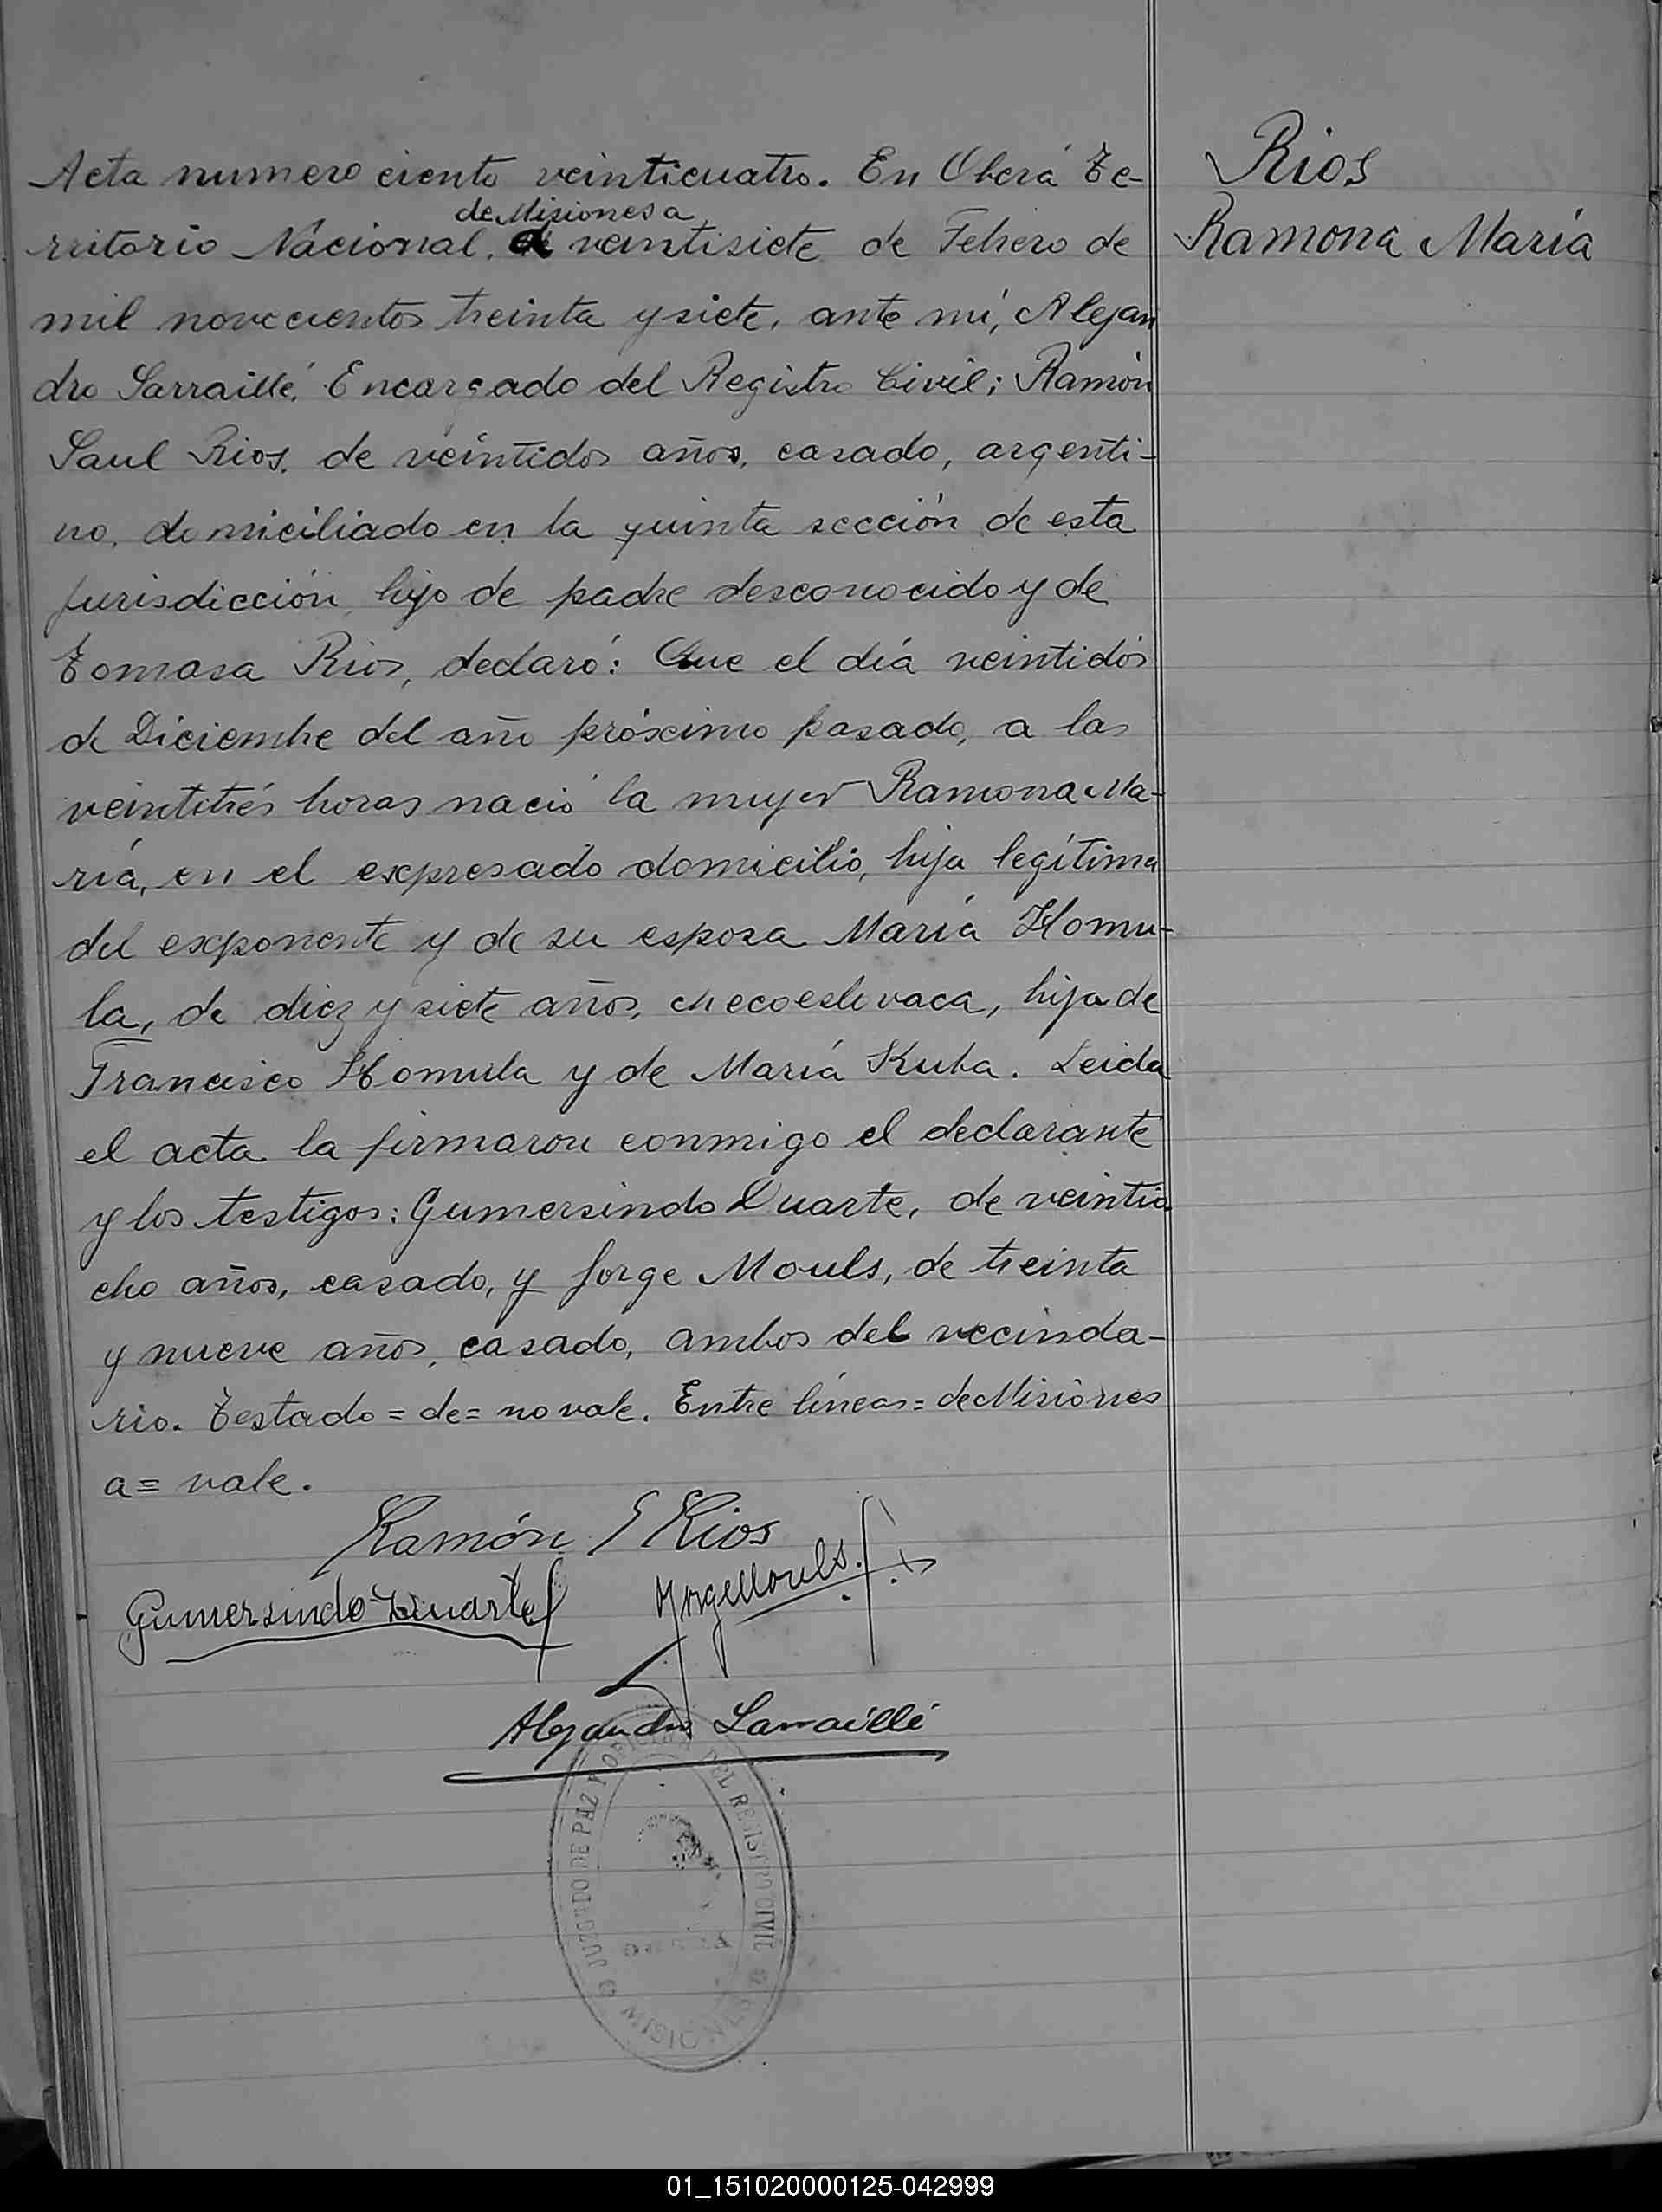 Rios
Ramona María
Acta numero ciento veinticuatro. En Oberá Te-
de Misiones a
rritorio Nácional. de veintisiete de Febrero de
mil novecientos treinta y siete, ante mí, Alejan
dro Sarraillé. Encargado del Registro Civil; Ramón
Saul Rios, de veintidos años, casado, argenti-
no, domiciliado en la quinta sección de esta
jurisdicción, hijo de padre desconocido y de
Tomasa Rios, declaró: Que el día veintidós
de Diciembre del año próximo pasado, a las
veintitrés horas nació la mujer Ramona Ma-
ría, en el expresado domicilio, hija legítima
del exponente y de su esposa María Homu-
la, de diez y siete años, checoeslovaca, hija de
Francisco Homula y de María Kuba. Leida
el acta la firmaron conmigo el declarante
y los testigos: Gumersindo Duarte, de veintio
cho años, casado, y Jorge Mouls, de treinta
y nueve años, casado, ambos del vecinda-
rio. Testado = de = no vale. Entre líneas = de Misiones
a = vale.
Ramón S Rios
Gumersindo Duarte
Jorge Mouls.
Alejandro Sarraillé
JUZGADO DE PAZ Y OFICINA DEL REGISTRO CIVIL
01_151020000125-042999